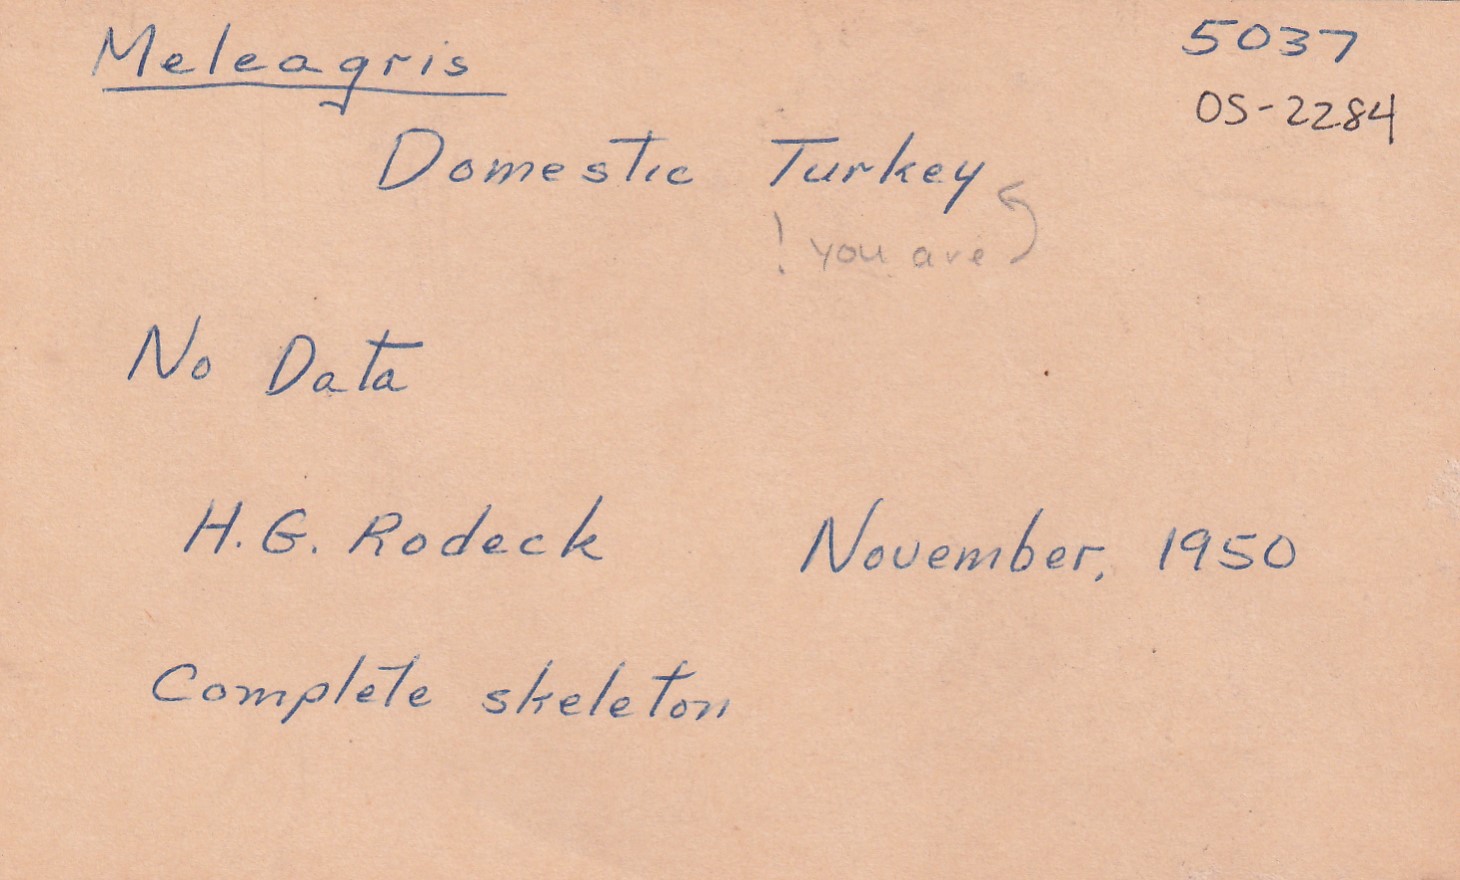 Meleagris
5037
OS-2284
Domestic Turkey
! you are
No Data
H. G. Rodeck November, 1950
Complete skeleton